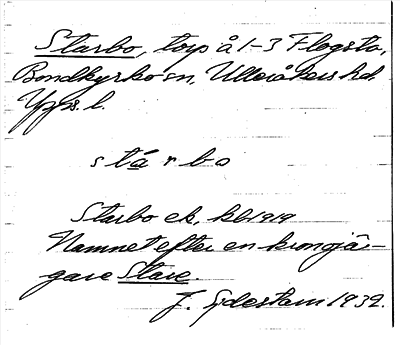 Starbo, torp å 1-3 Flogsta,
Bondkyrko sn, Ulleråkers hd.
Upps. l.
stárbo
Starbo ek. kbl 1919
Namnet efter en kronojä-
gare Stare.
F. 1932.